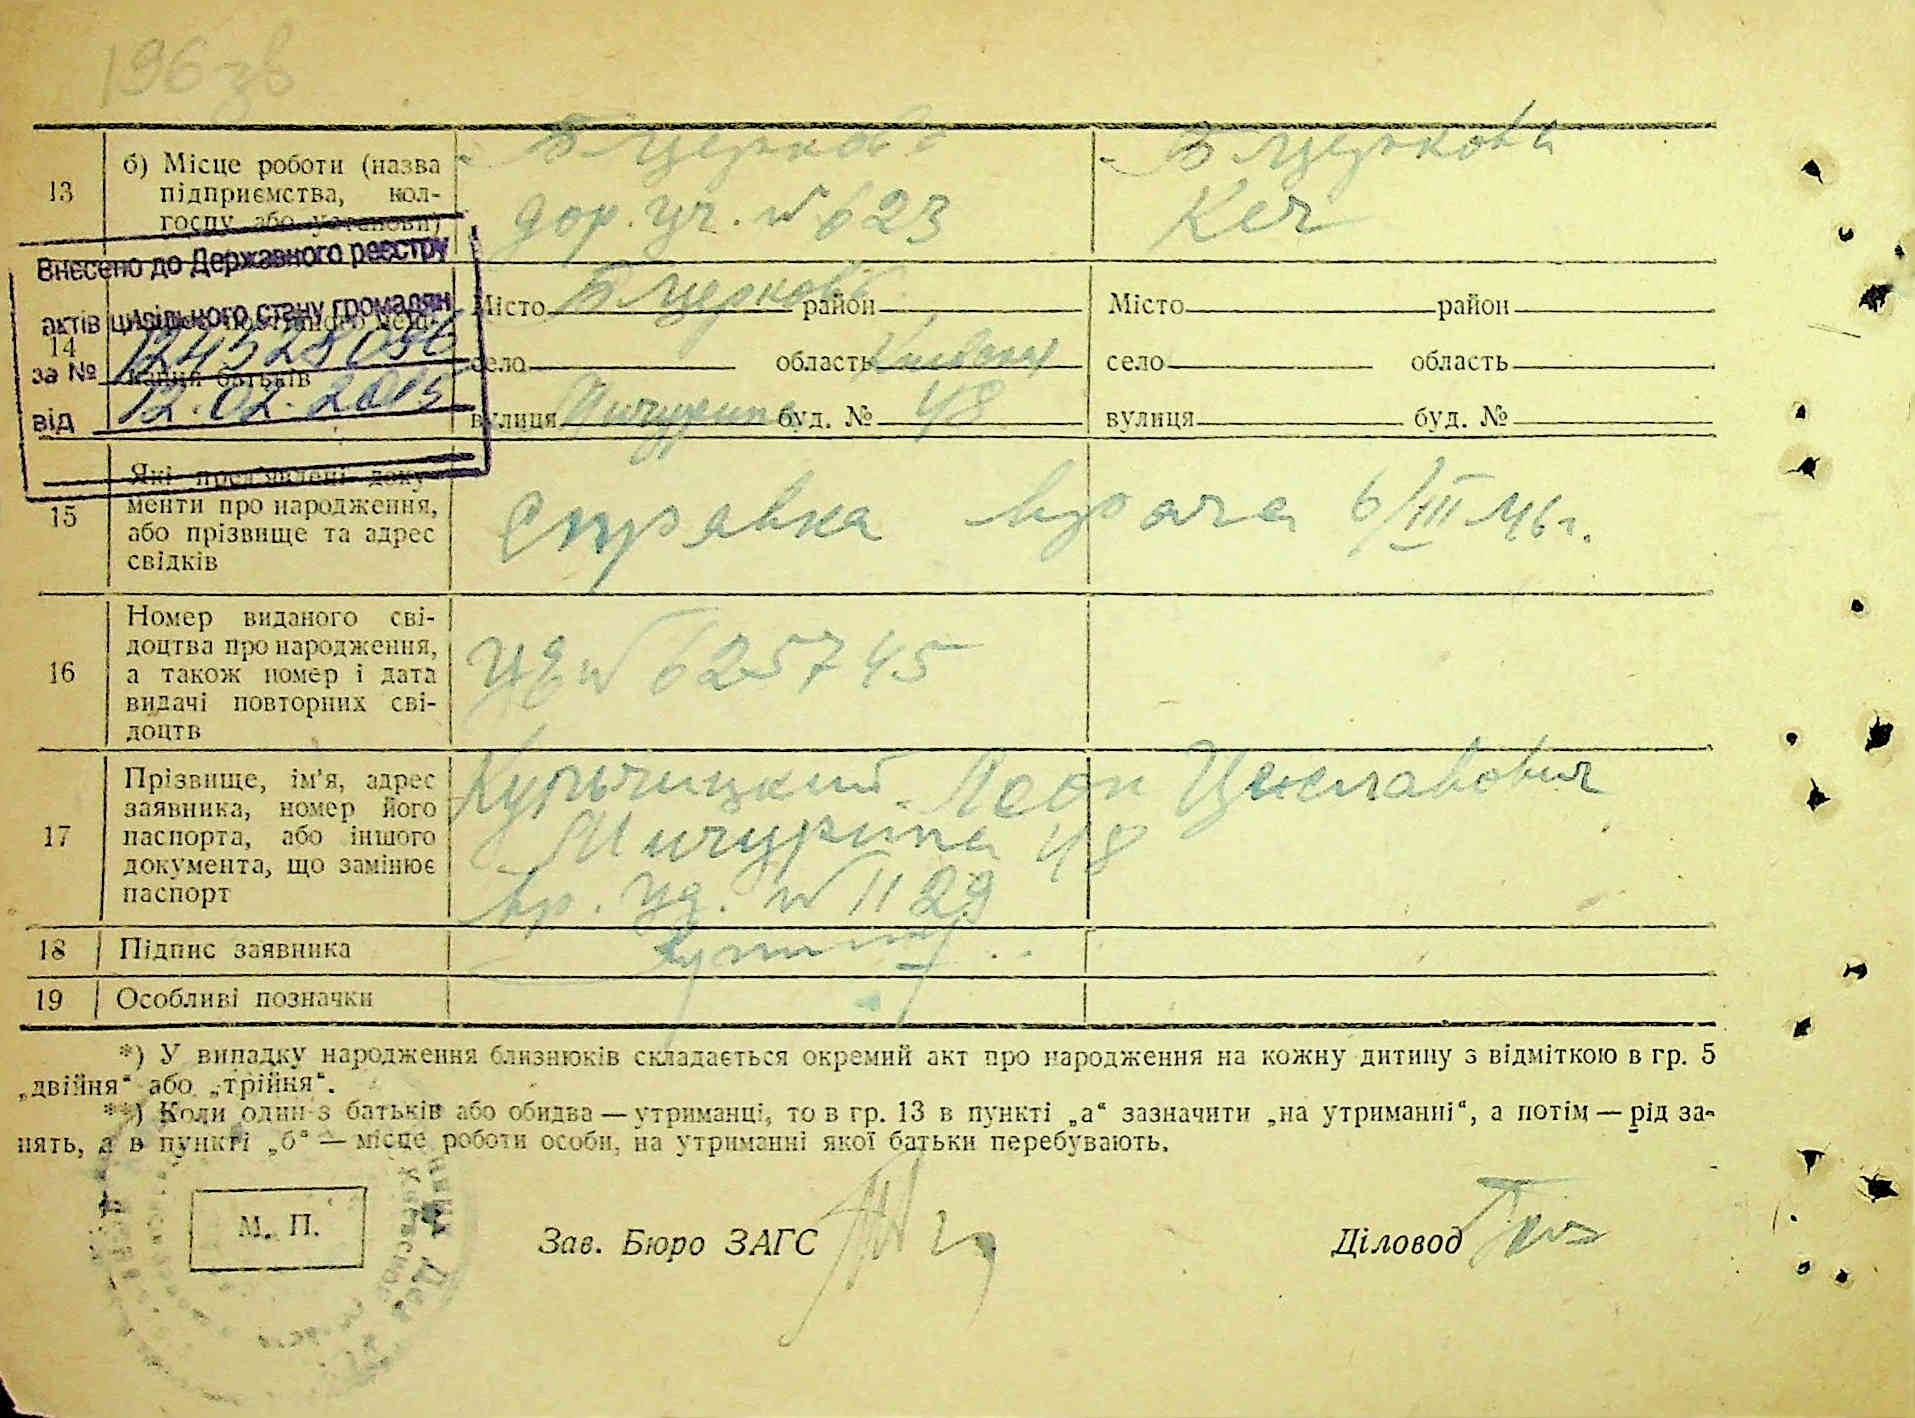 196 зв
13
б) Місце роботи (назва
підприємства, кол-
госпу або установи)
Б Церковь
дор. уч. № 623
Б Церкови
Кеч
Внесено до Державного реєстру
актів цивільного стану громадян
за №
від 12.02.2015
14
кання батьків
Місто Б Церковь район
село область Киевская
вулиця Мичурина буд. № 48
Місто район
село область
вулиця буд. №
15
Які пред'явлені доку-
менти про народження,
або прізвище та адрес
свідків
Справка врача 6/III 46 г.
16
Номер виданого сві-
доцтва про народження,
а також номер і дата
видачі повторних сві-
доцтв
№ 625745
17
Прізвище, ім'я, адрес
заявника, номер його
паспорта, або іншого
документа, що замінює
паспорт
Леон
Мичурина 48
вр. уд. № 1129
18
Підпис заявника
19
Особливі позначки
*) У випадку народження близнюків складається окремий акт про народження на кожну дитину з відміткою в гр. 5
„двійня“ або „трійня“.
**) Коли один з батьків або обидва — утриманці, то в гр. 13 в пункті „а“ зазначити „на утриманні“, а потім — рід за-
нять, а в пункті „б“ — місце роботи особи, на утриманні якої батьки перебувають.
М. П.
Зав. Бюро ЗАГС
Діловод